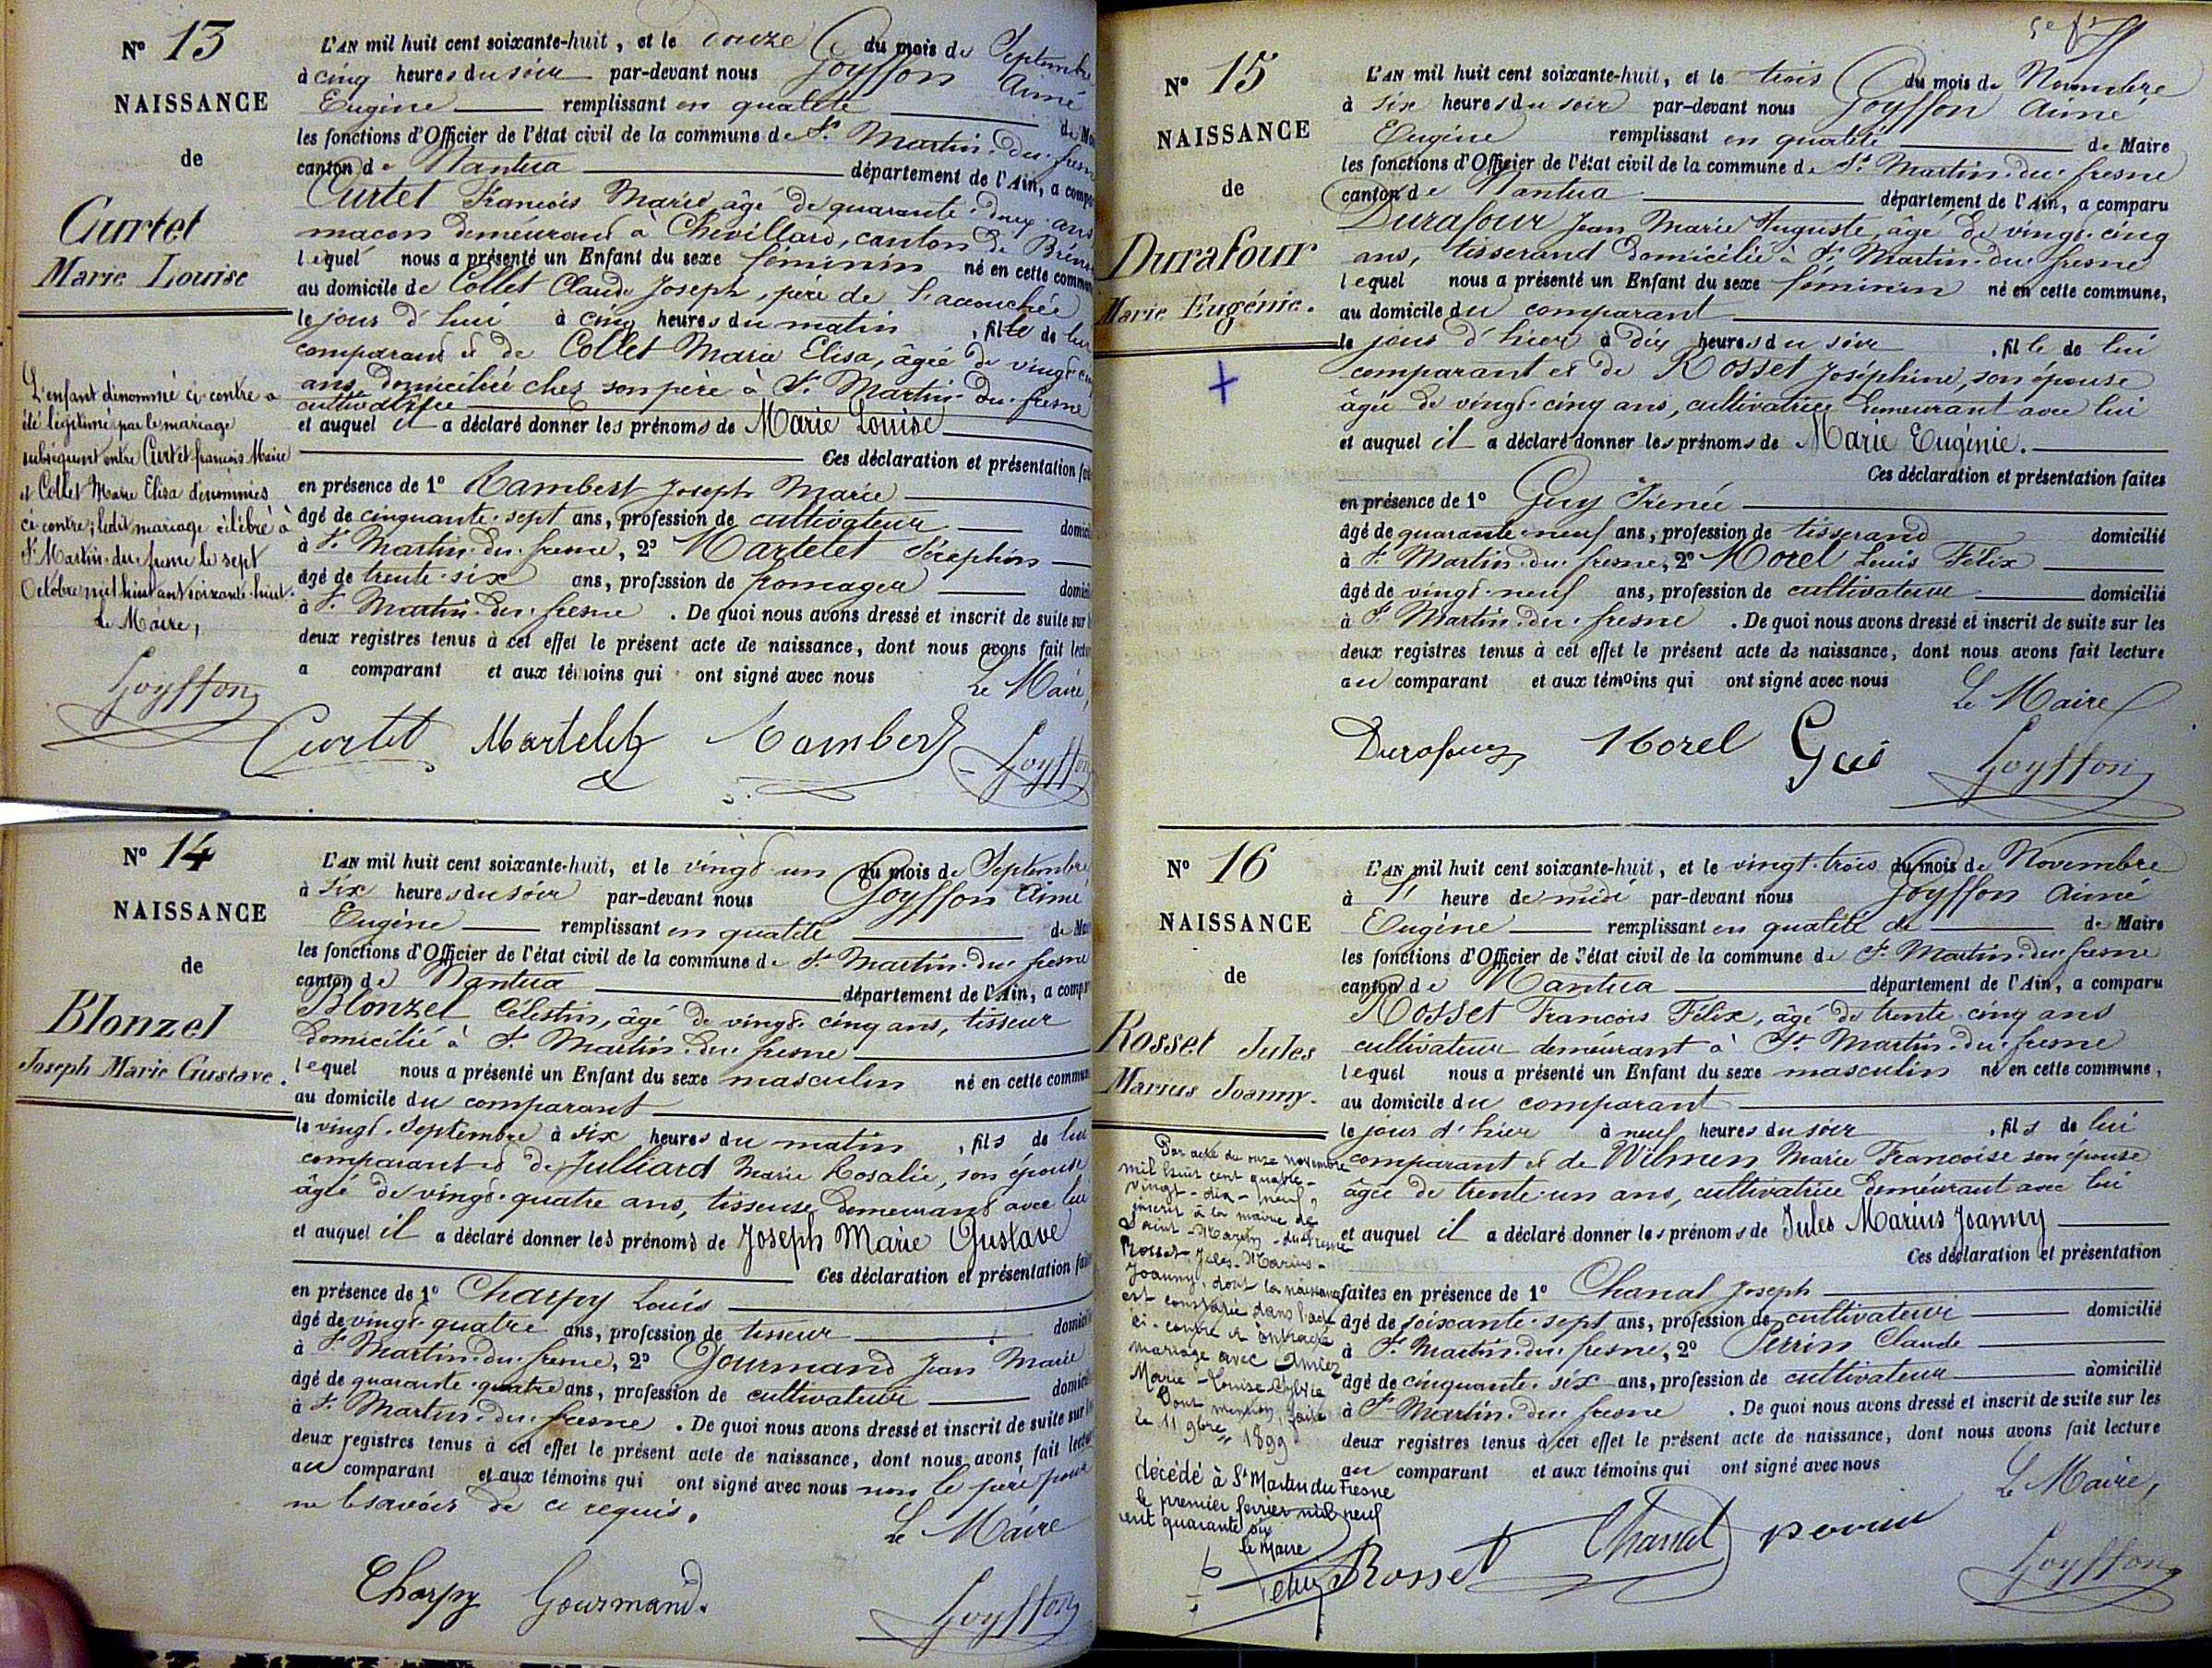 N° 13
NAISSANCE
de
Curtet
Marie Louise
L'enfant dénommé ci-contre a
été légitimé par le mariage
subséquent entre Curtet françois Marie
et Collet Marie Elisa dénommés
ci-contre; ledit mariage célébré à
St Martin-du-fresne le sept
Octobre mil huit cent soixante-huit.
Le Maire,
Goyffon
L'AN mil huit cent soixante-huit, et le douze du mois de Septembre
à cinq heures du soir par-devant nous Goyffon Aimé
Eugène remplissant en qualité de
les fonctions d'Officier de l'état civil de la commune de St Martin-du-fresne
canton de Nantua département de l'Ain, a
Curtet François Marie, âgé de quarante-deux ans
maçon demeurant à Chevillard, canton de
lequel nous a présenté un Enfant du sexe féminin né en cette
au domicile de Collet Claude Joseph, père de l'accouchée
le jour d'hui à cinq heures du matin, fille de lui
comparant et de Collet Marie Elisa, âgée de vingt
ans, domiciliée chez son père à St Martin-du-fresne
cultivatrice
et auquel il a déclaré donner les prénoms de Marie Louise
Ces déclaration et présentation
en présence de 1° Rambert Joseph Marie
âgé de cinquante-sept ans, profession de cultivateur
à St Martin-du-fresne, 2° Martelet Séraphin
âgé de trente-six ans, profession de fromager
à St Martin-du-fresne. De quoi nous avons dressé et inscrit de suite sur
deux registres tenus à cet effet le présent acte de naissance, dont nous avons fait
a comparant et aux témoins qui ont signé avec nous
Le Maire,
Curtet Martelet Rambert Goyffon
N° 14
NAISSANCE
de
Blonzel
Joseph Marie Gustave.
L'AN mil huit cent soixante-huit, et le vingt-un du mois de Septembre
à six heures du soir par-devant nous Goyffon Aimé
Eugène remplissant en qualité de
les fonctions d'Officier de l'état civil de la commune de St Martin-du-fresne
canton de Nantua département de l'Ain, a
Blonzel Célestin, âgé de vingt-cinq ans, tisseur
domicilié à St Martin-du-fresne
lequel nous a présenté un Enfant du sexe masculin né en cette
au domicile du comparant
le vingt Septembre à six heures du matin, fils de lui
comparant et de Julliard Marie Rosalie, son épouse
âgée de vingt-quatre ans, tisseuse demeurant avec lui
et auquel il a déclaré donner les prénoms de Joseph Marie Gustave
Ces déclaration et présentation
en présence de 1° Charpy Louis
âgé de vingt-quatre ans, profession de tisseur
à St Martin-du-fresne, 2° Gourmand Jean Marie
âgé de quarante-quatre ans, profession de cultivateur
à St Martin-du-fresne. De quoi nous avons dressé et inscrit de suite sur
deux registres tenus à cet effet le présent acte de naissance, dont nous avons fait
au comparant et aux témoins qui ont signé avec nous non le père pour
ne le savoir de ce requis.
Le Maire
Charpy Gourmand. Goyffon
N° 15
NAISSANCE
de
Durafour
Marie Eugénie.
L'AN mil huit cent soixante-huit, et le trois du mois de Novembre
à six heures du soir par-devant nous Goyffon Aimé
Eugène remplissant en qualité de Maire
les fonctions d'Officier de l'état civil de la commune de St Martin-du-fresne
canton de Nantua département de l'Ain, a comparu
Durafour Jean Marie Auguste, âgé de vingt-cinq
ans, tisserand domicilié à St Martin-du-fresne
lequel nous a présenté un Enfant du sexe féminin né en cette commune,
au domicile du comparant
le jour d'hier à dix heures du soir, fille de lui
comparant et de Rosset Joséphine, son épouse
âgée de vingt-cinq ans, cultivatrice demeurant avec lui
et auquel il a déclaré donner les prénoms de Marie Eugénie.
Ces déclaration et présentation faites
en présence de 1° Guy Irénée
âgé de quarante-neuf ans, profession de tisserand domicilié
à St Martin-du-fresne, 2° Morel Louis Félix
âgé de vingt-neuf ans, profession de cultivateur domicilié
à St Martin-du-fresne. De quoi nous avons dressé et inscrit de suite sur les
deux registres tenus à cet effet le présent acte de naissance, dont nous avons fait lecture
au comparant et aux témoins qui ont signé avec nous
Le Maire
Durafour Morel Gui Goyffon
N° 16
NAISSANCE
de
Rosset Jules
Marius Joanny.
Par acte du onze novembre
mil huit cent quatre-
vingt-dix-neuf,
inscrit à la mairie de
Saint-Martin-du-Fresne
Rosset Jules-Marius-
Joanny, dont la naissance
est constatée dans l'acte
ci-contre a contracté
mariage avec
Marie-Louise-Sylvie
Dont mention faite
le 11 9bre 1899
décédé à St Martin du Fresne
le premier février mil neuf
cent quarante six
le Maire
L'AN mil huit cent soixante-huit, et le vingt-trois du mois de Novembre
à 1 heure de midi par-devant nous Goyffon Aimé
Eugène remplissant en qualité de de Maire
les fonctions d'Officier de l'état civil de la commune de St Martin-du-fresne
canton de Nantua département de l'Ain, a comparu
Rosset François Félix, âgé de trente-cinq ans
cultivateur demeurant à St Martin-du-fresne
lequel nous a présenté un Enfant du sexe masculin né en cette commune,
au domicile du comparant
le jour d'hier à neuf heures du soir, fils de lui
comparant et de Wilmen Marie Françoise son épouse
âgée de trente-un ans, cultivatrice demeurant avec lui
et auquel il a déclaré donner les prénoms de Jules Marius Joanny
Ces déclaration et présentation
faites en présence de 1° Chanal Joseph
âgé de soixante-sept ans, profession de cultivateur domicilié
à St Martin-du-fresne, 2° Perrin Claude
âgé de cinquante-six ans, profession de cultivateur domicilié
à St Martin-du-fresne. De quoi nous avons dressé et inscrit de suite sur les
deux registres tenus à cet effet le présent acte de naissance, dont nous avons fait lecture
au comparant et aux témoins qui ont signé avec nous
Le Maire,
Rosset Chanal perrin Goyffon